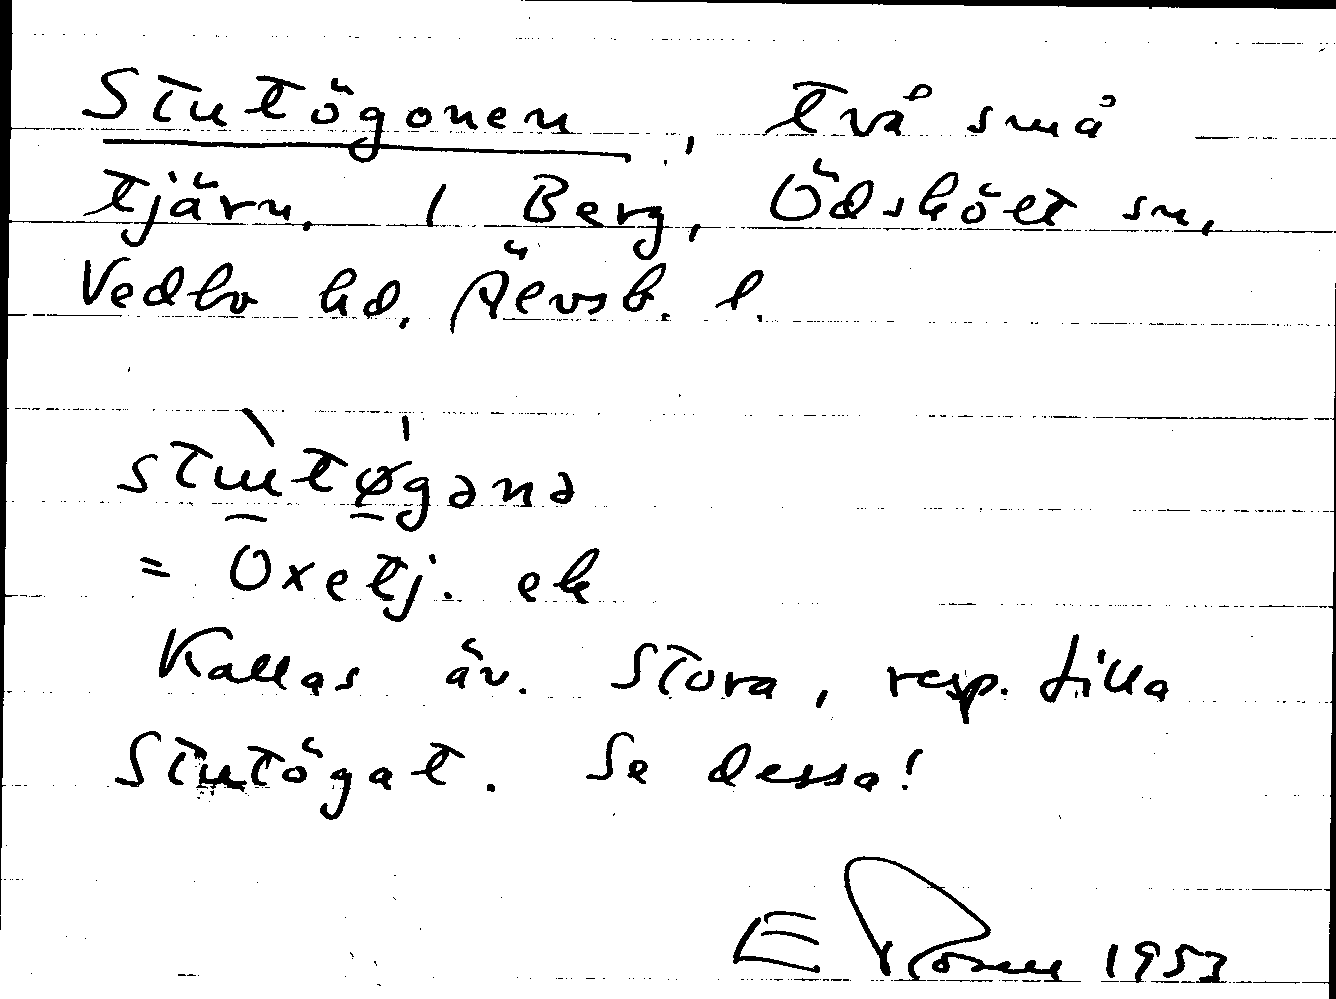 Stutögonen, två små
tjärn. I Berg, Ödsköelt sn,
Vedbo hd. Älvsb. l.
stɯ̀tǿgənə
= Oxetj. ek
Kallas äv. Stora, resp. Lilla
Stutögat. Se dessa!
E 1953